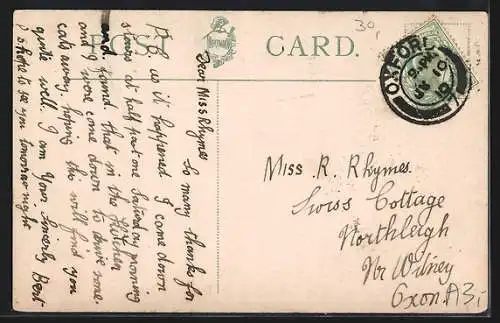 POST CARD.
30,
OXFORD
9. PM
10
Dear Miss Rhymes
So many thanks for
P.C. as it happened I came down
stairs at half past one Saturday morning
and found that in the Kitchen
and I were come down to drive some
cats away, hoping this will find you
quite well. I am Yours Sincerely Bert
I hope to see you tomorrow night
Miss R. Rhymes.
Swiss Cottage
Northleigh
Nr Witney
Oxon A3,-